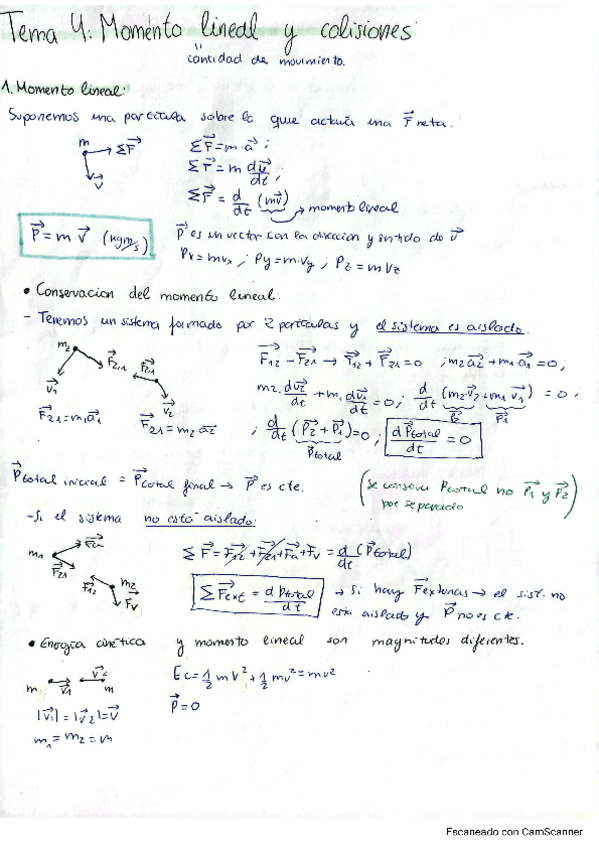 Tema 4: Momento lineal y colisiones
"
cantidad de movimiento.
1. Momento lineal:
Suponemos una partícula sobre la que actúa una F⃗ neta.
m ΣF⃗ v⃗
ΣF⃗ = m·a⃗ ;
ΣF⃗ = m dv⃗/dt ;
ΣF⃗ = d/dt (mv⃗) → momento lineal
P⃗ = m·v⃗ (kg m/s)
P⃗ es un vector con la dirección y sentido de v⃗
Px = mvx ; Py = m·vy ; Pz = m vz
• Conservacion del momento lineal.
- Tenemos un sistema formado por 2 partículas y el sistema es aislado.
m2 F⃗21 F⃗21 v⃗1 v⃗2
F⃗12 - F⃗21 → F⃗12 + F⃗21 = 0 ; m2 a⃗2 + m1 a⃗1 = 0 ;
m2· dv⃗2/dt + m1 dv⃗1/dt = 0 ; d/dt (m2·v⃗2 + m1·v⃗1) = 0 ;
P⃗2 P⃗1
F⃗21 = m1a⃗1 F⃗21 = m2·a⃗2 ; d/dt (P⃗2 + P⃗1) = 0 ; dP⃗total/dt = 0
P⃗total
P⃗total inicial = P⃗total final → P⃗ es cte.
(se conserva Ptotal no P⃗1 y P⃗2
por separado)
- Si el sistema no está aislado:
m1 F⃗a F⃗21 F⃗12 m2 F⃗v
ΣF⃗ = F⃗12 + F⃗21 + F⃗a + F⃗v = d/dt (P⃗total)
ΣF⃗ext = dP⃗total/dt → si hay F⃗externas → el sist. no
esta aislado y P⃗ no es cte.
• Energía cinética y momento lineal son magnitudes diferentes.
m v⃗1 v⃗2 m
Ec = 1/2 m v² + 1/2 mv² = mv²
|v⃗1| = |v⃗2| = v⃗
P⃗ = 0
m1 = m2 = m
Escaneado con CamScanner